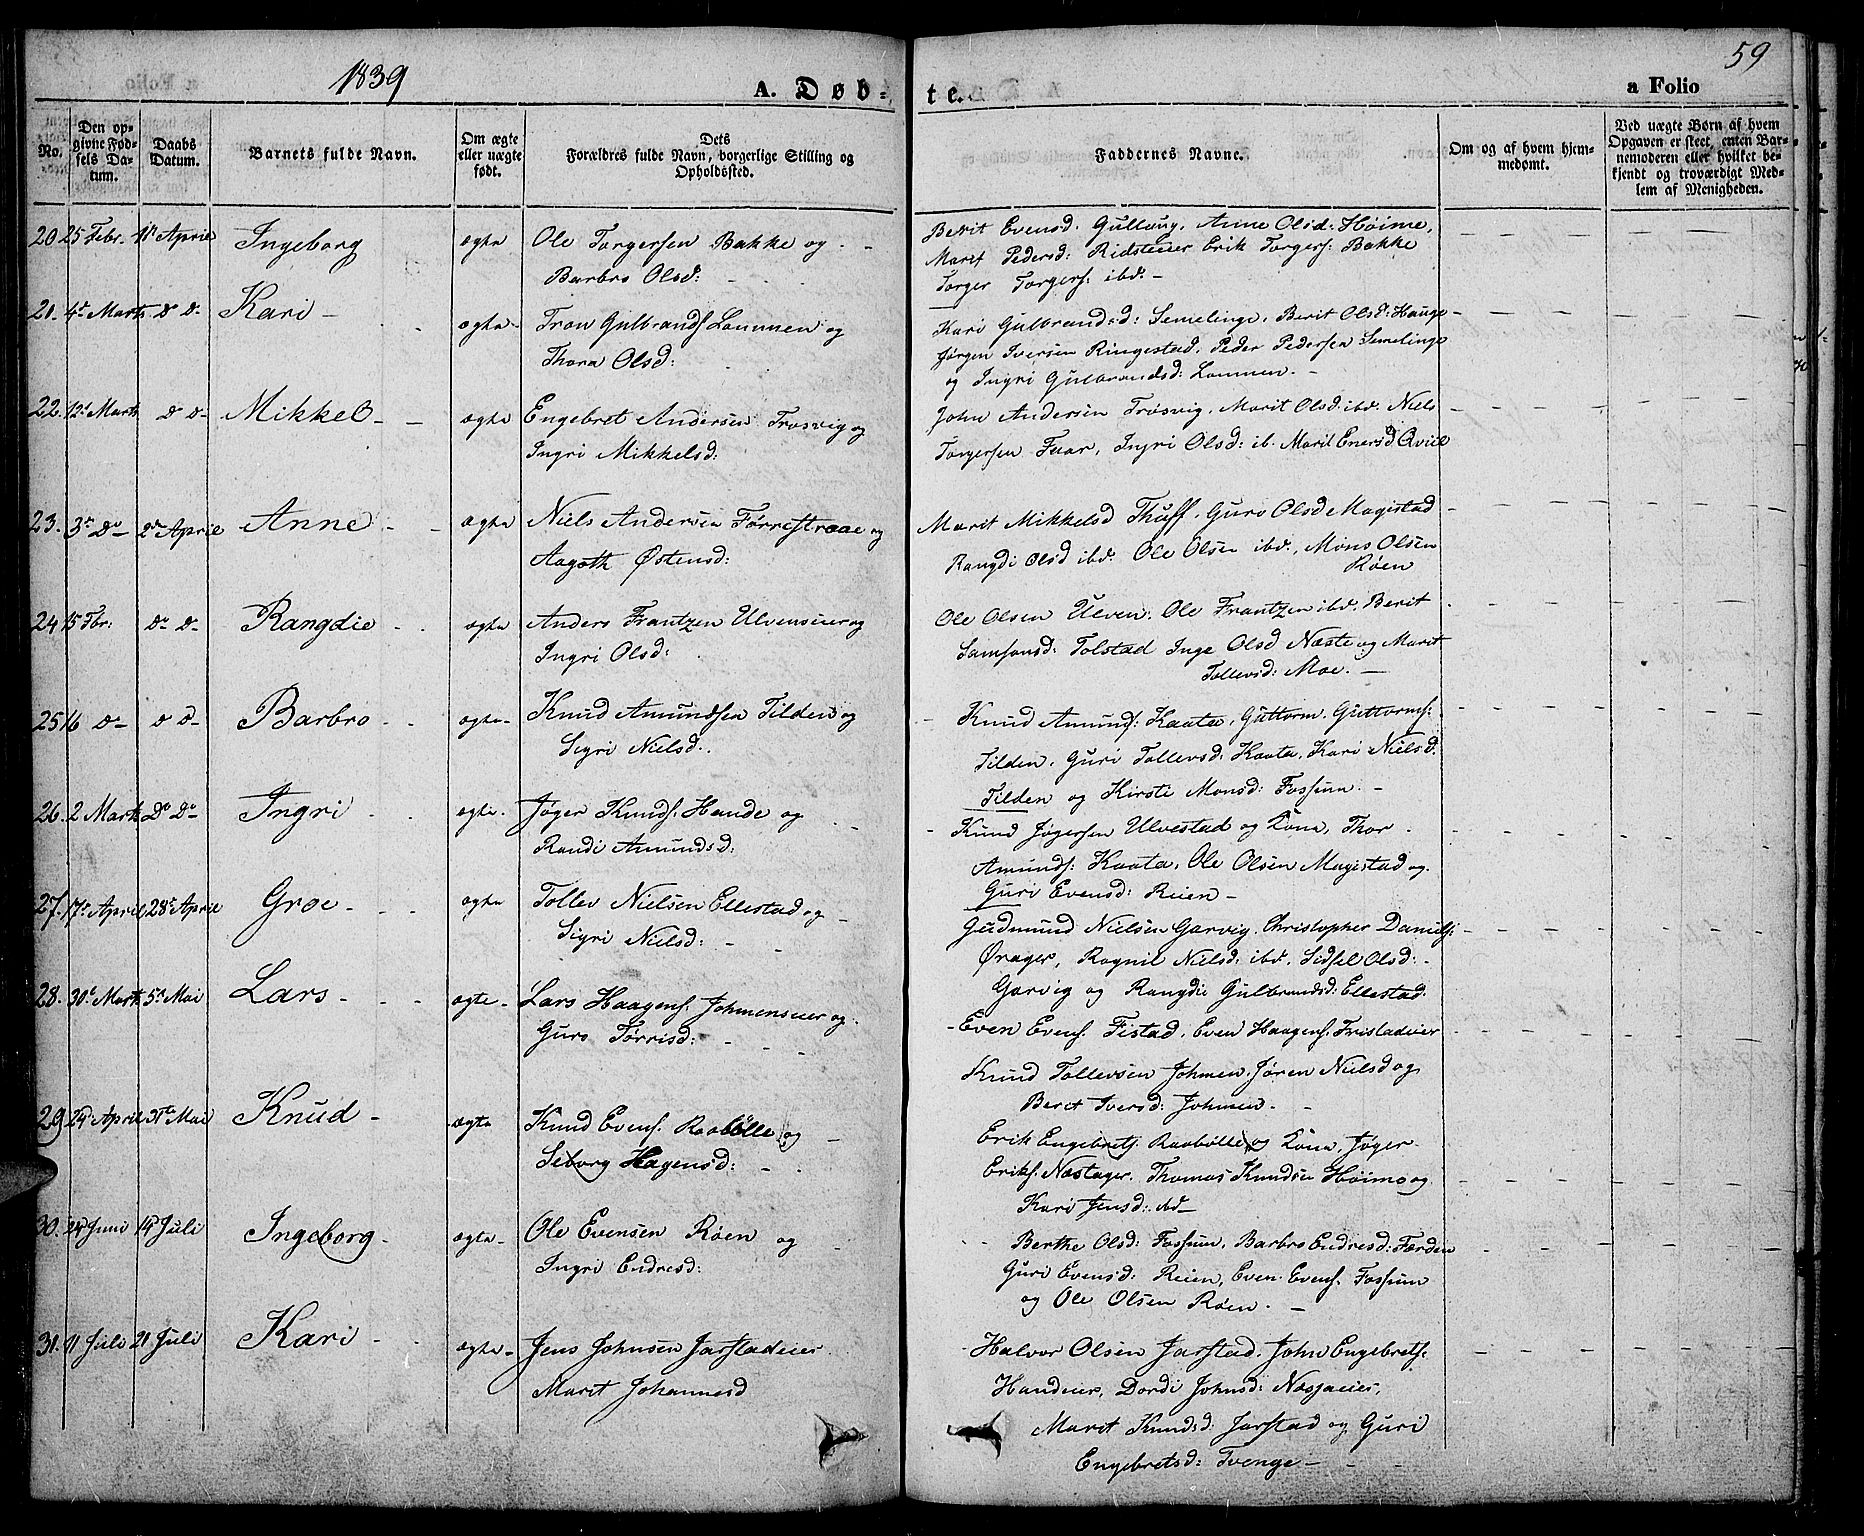 1839
A. Døb-
te.
a Folio
59
No.
Den op-
givne Fød-
sels Da-
tum.
Daabs
Datum.
Barnets fulde Navn.
Om ægte
eller uægte
født.
Dets
Forældres fulde Navn, borgerlige Stilling og
Opholdssted.
Faddernes Navne.
Om og af hvem hjem-
medømt.
Ved uægte Børn af hvem
Opgaven er skeet, enten Bar-
nemoderen eller hvilket be-
kjendt og troværdigt Med-
lem af Menigheden.
20. 25 Febr. 1ste April Ingeborg ægte Ole Torgersen Bakke og
Barbro Olsd:
Berit Evensd. Gullung, Anne Olsd: Høime,
Marit Pedersd: Ridsteeier Erik Torgers: Bakke
Torger Torgers: ibd. –
21. 4de Marts do do Kari – ægte Tron Gulbrands. Lommen og
Thora Olsd:
Kari Gulbrandsd: Semelinge, Berit Olsd: Hauge
Jørgen Iversen Ringestad, Peder Pedersen Semelinge
og Ingri Gulbrandsd: Lommen. –
22. 12te Marts do do Mikkel – ægte Engebret Andersen Trosvig og
Ingri Mikkelsd:
John Andersen Trøsvig, Marit Olsd: ibd. Niels
Torgersen Faar, Ingri Olsd: ib. Marit Enersd Qviel
23. 3de do 2den April Anne ægte Niels Andersen Førrestraae og
Aagoth Østensd:
Marit Mikkelsd Thuff. Guro Olsd Magistad
Rangdi Olsd ibd. Ole Olsen ibd., Mons Olsen
Røen
24 15 Fbr: do do Rangdie ægte Anders Frantzen Ulvenseier og
Ingri Olsd:
Ole Olsen Ulven. Ole Frantzen ibd. Berit
Samsonsd: Tolstad Inge Olsd Næste og Marit
Tollevsd: Moe. –
25 16 do do do Barbro ægte Knud Amundsen Tilden og
Sigri Nielsd.
Knud Amunds: Kaata, Guttorm Guttorms:
Tilden, Guri Tollevsd: Kaata, Kari Nielsd.
Tilden og Kirsti Monsd: Fossum. –
26. 2 Marts do do Ingri ægte Jøger Knuds. Hande og
Randi Amundsd:
Knud Jøgersen Ulvestad og Kona, Thor
Amunds: Kaata, Ole Olsen Magistad og
Guri Evensd: Reien –
27. 17de April 28de April Groe ægte Tollev Nielsen Ellestad og
Sigri Nielsd:
Gudmund Nielsen Garvig, Christopher Daniels:
Ørager, Ragnil Nielsd: ibd. Sidsel Olsd:
Garvig og Rangdie Gulbrandsd: Ellestad.
28. 30te Marts 5te Mai Lars ægte Lars Haagens. Johmenseier og
Guro Tørrisd:
Even Evens. Fistad, Even Haagens. Tristadeier
Knud Tollevsen Johmen, Jøren Nielsd og
Berit Iversd: Johmen. –
29 24de April 31te Mai Knud ægte Knud Evens. Raabølle og
Seborg Hagensd:
Erik Engebrets. Raabølle og Kona, Jøger
Eriks. Næstager. Thomas Knudsen Høimo og
Kari Jensd: ibd –
30. 24 Juni 14 Juli Ingeborg ægte Ole Evensen Røen og
Ingri Endresd:
Berthe Olsd: Fossum, Barbro Endresd: Færden
Guri Evensd: Reien, Even Evens. Fossum
og Ole Olsen Røen. –
31. 11 Juli 21 Juli Kari ægte Jens Johnsen Jarstadeier
Marit Johannesd
Halvor Olsen Jarstad, John Engebrets:
Handeier, Dordi Johnsd: Næsjaeier,
Marit Knudsd: Jarstad og Guri
Engebretsd: Tvenge –